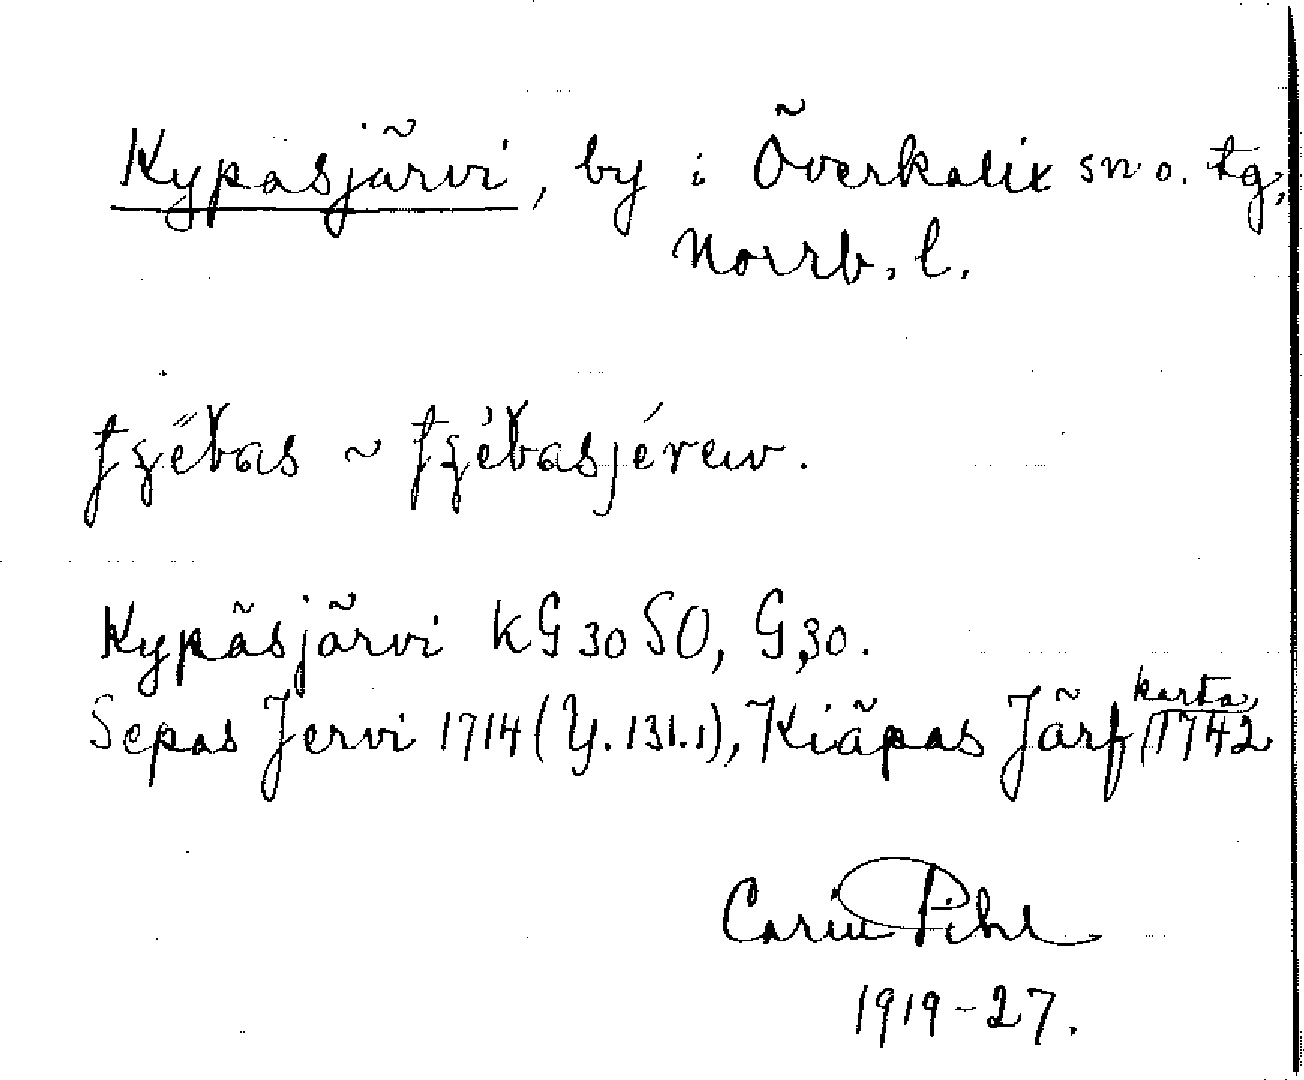 Kypasjärvi, by i Överkalix sn o. tg;
Norrb. l.
Kypäsjärvi KG 30 SO, G,30.
Sepas Jervi 1714 (Y. 131.1), Kiäpas Järf (karta, 1742
Carin Pihl
1919-27.